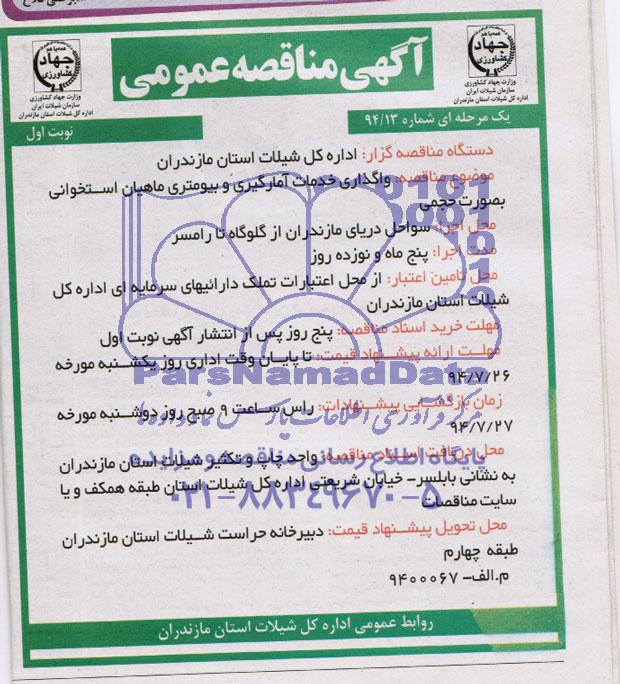 آگهی مناقصه عمومی
همه با هم
جهاد
کشاورزی
وزارت جهاد کشاورزی
سازمان شیلات ایران
اداره کل شیلات استان مازندران
همه با هم
جهاد
کشاورزی
وزارت جهاد کشاورزی
سازمان شیلات ایران
اداره کل شیلات استان مازندران
یک مرحله ای شماره ۹۴/۱۳
نوبت اول
دستگاه مناقصه گزار: اداره کل شیلات استان مازندران
موضوع مناقصه: واگذاری خدمات آمارگیری و بیومتری ماهیان استخوانی
بصورت حجمی
محل اجرا: سواحل دریای مازندران از گلوگاه تا رامسر
مدت اجرا: پنج ماه و نوزده روز
محل تامین اعتبار: از محل اعتبارات تملک دارائیهای سرمایه ای اداره کل
شیلات استان مازندران
مهلت خرید اسناد مناقصه: پنج روز پس از انتشار آگهی نوبت اول
مهلت ارائه پیشنهاد قیمت: تا پایان وقت اداری روز یکشنبه مورخه
۹۴/۷/۲۶
زمان بازگشایی پیشنهادات: راس ساعت ۹ صبح روز دوشنبه مورخه
۹۴/۷/۲۷
محل دریافت اسناد مناقصه: واحد چاپ و تکثیر شیلات استان مازندران
به نشانی بابلسر- خیابان شریعتی اداره کل شیلات استان طبقه همکف و یا
سایت مناقصات
محل تحویل پیشنهاد قیمت: دبیرخانه حراست شیلات استان مازندران
طبقه چهارم
م.الف- ۹۴۰۰۰۶۷
روابط عمومی اداره کل شیلات استان مازندران
ParsNamadData
مرکز فرآوری اطلاعات پارس نماد داده ها
پایگاه اطلاع رسانی مناقصه و مزایده
۰۲۱-۸۸۳۴۹۶۷۰-۵